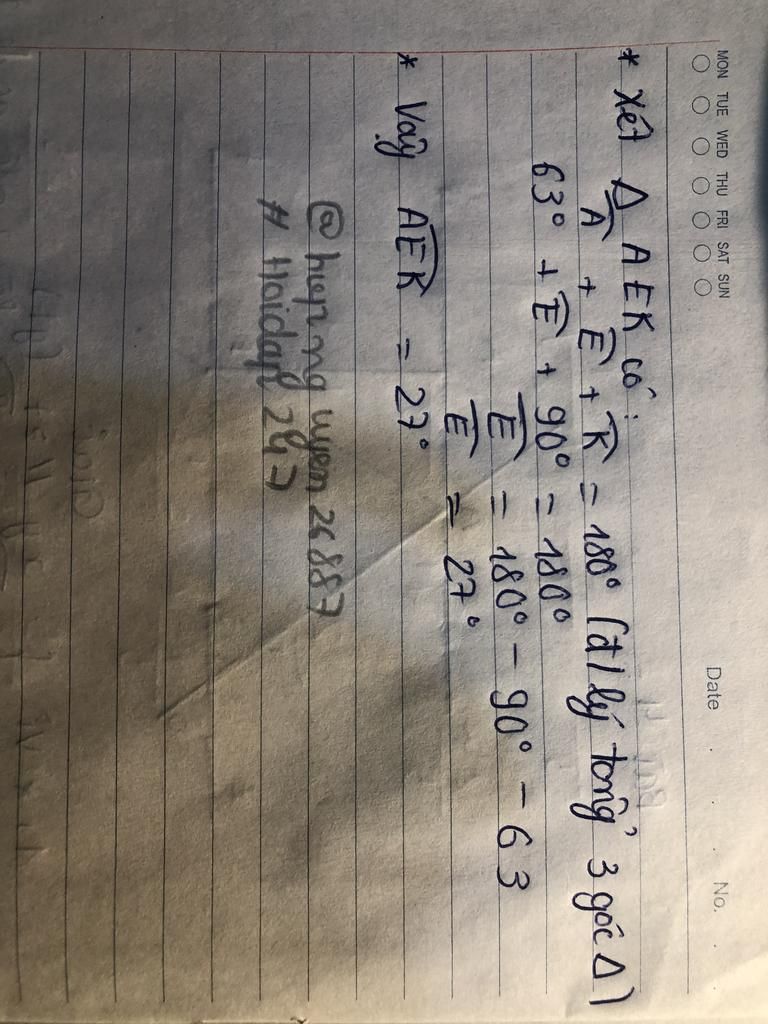 MON TUE WED THU FRI SAT SUN
Date
No.
* Xét Δ AEK có:
Â + Ê + K̂ = 180° (đ/lý tổng 3 góc Δ)
63° + Ê + 90° = 180°
Ê = 180° - 90° - 63
Ê = 27°
* Vậy AEK = 27°
@hiep ng uyen 26887
# Hoidap 247